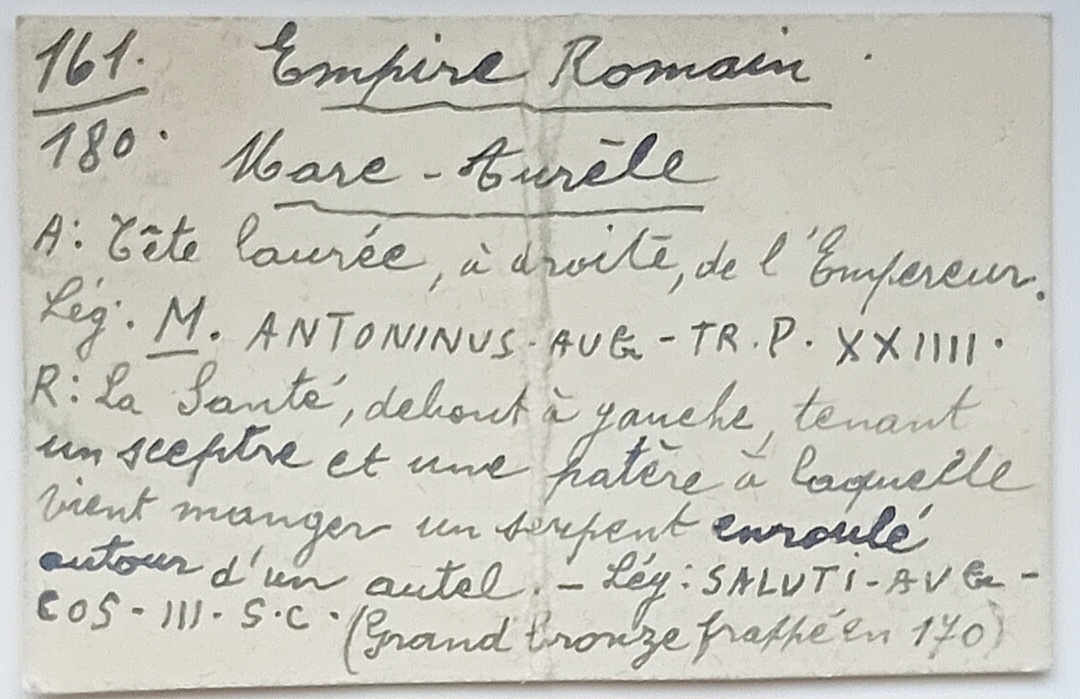 161. Empire Romain
180. Marc-Aurèle
A: Tête laurée, à droite, de l'Empereur.
Lég. M. ANTONINUS-AUG-TR.P. XXIIII.
R: La Santé, debout à gauche, tenant
un sceptre et une patère à laquelle
vient manger un serpent enroulé
autour d'un autel. - Lég: SALUTI-AUG-
COS-III. S.C. (Grand bronze frappé en 170)